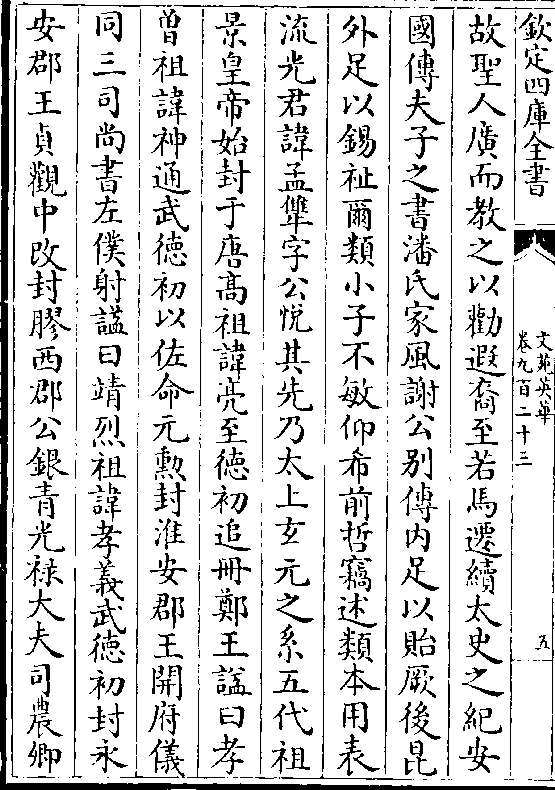 欽定四庫全書
文苑英華
卷九百二十三
五
故聖人廣而教之以勸遐裔至若馬遷續太史之紀安
國傳夫子之書潘氏家風謝公别傳内足以貽厥後昆
外足以錫祉爾類小子不敏仰希前哲竊述類本用表
流光君諱孟犨字公悅其先乃太上玄元之系五代祖
景皇帝始封于唐高祖諱亮至德初追冊鄭王諡曰孝
曾祖諱神通武德初以佐命元勲封淮安郡王開府儀
同三司尚書左僕射諡曰靖烈祖諱孝義武德初封永
安郡王貞觀中改封膠西郡公銀青光禄大夫司農卿